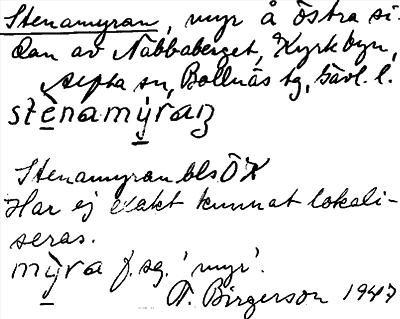 Stenamyran, myr å östra si-
dan av Nabbaberget, Kyrkbyn,
Alfta sn, Bollnäs tg, Gävl. l.
stènamỳran
Stenamyran bls ÖK
Har ej exakt kunnat lokali-
seras.
mỳra f. sg. 'myr'.
T. Birgerson 1947